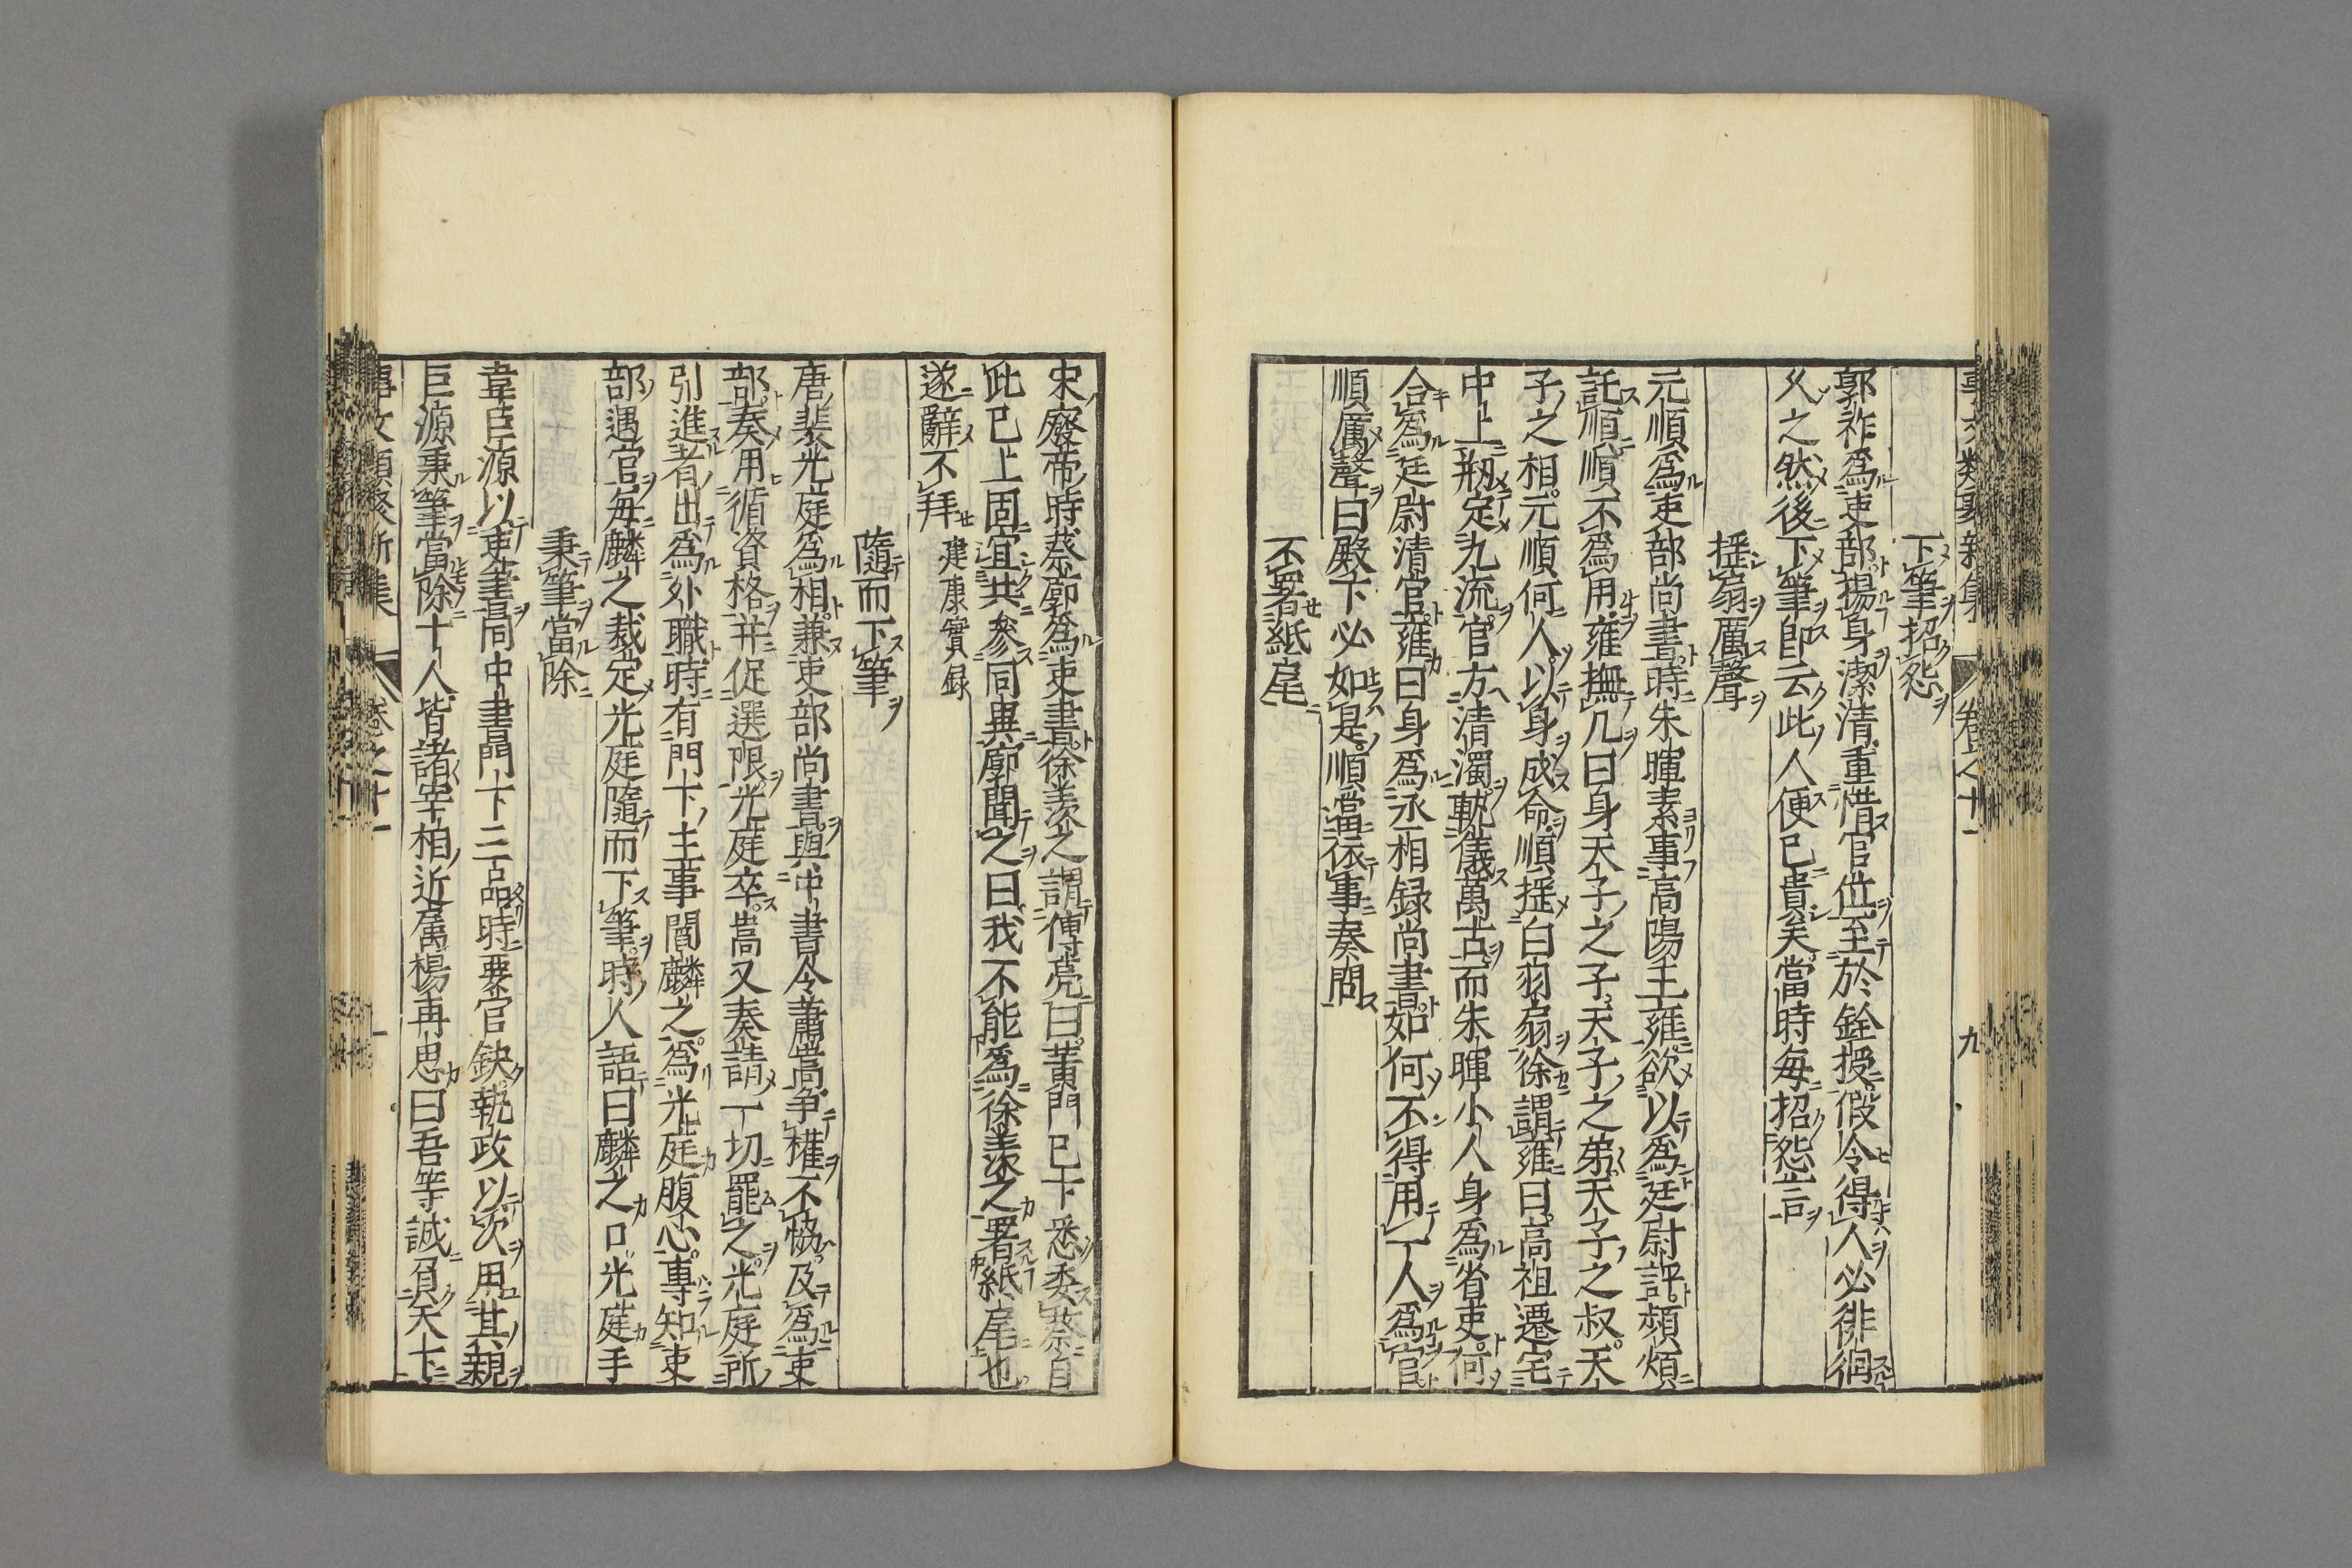 卷之十一
九
下筆招怨
郭祚爲吏部揚身潔清重惜官位至於銓授假令得人必徘徊
久之然後下筆即云此人便已貴矣當時每招怨言
握扇厲聲
元順爲吏部尚書時朱暉素事高陽王雍欲以爲廷尉評頻煩
託順順不爲用雍撫几曰身天子之子天子之弟天子之叔天
子之相元順何人以身成命順握白羽扇徐謂雍曰高祖遷宅
中土刱定九流官方清濁軌儀萬古而朱暉小人身爲省吏何
合爲廷尉清官雍曰身爲丞相録尚書如何不得用一人爲官
順厲聲曰殿下必如是順當依事奏聞
不署紙尾
宋廢帝時蔡廓爲吏書徐羡之謂傅亮曰黄門已下悉委蔡自
此已上固宜共參同異廓聞之曰我不能爲徐羡之署紙尾也
遂辭不拜 建康實録
隨而下筆
唐裴光庭爲相兼吏部尚書與中書令蕭嵩争權不恊及爲吏
部奏用循資格并促選限光庭卒嵩又奏請一切罷之光庭所
引進者出爲外職時有門下主事閻麟之爲光庭腹心專知吏
部遇官每麟之裁定光庭隨而下筆時人語曰麟之口光庭手
秉筆當除
韋巨源以吏筆同中書門下三品時要官缺執政以次用其親
巨源秉筆當除十人皆諸宰相近属楊再思曰吾等誠負天下
事文類聚新集
卷之十一